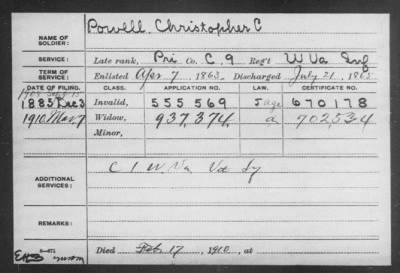 NAME OF SOLDIER: Powell, Christopher C
SERVICE: Late rank, Pri Co. C, 9 Reg't W Va Inf
TERM OF SERVICE: Enlisted Apr 7, 1863, Discharged July 21, 1865
DATE OF FILING. CLASS. APPLICATION NO. LAW. CERTIFICATE NO.
1885 Dec 3 Invalid, 555 569 670178
1910 Mar 7 Widow, 937,374 a 702,534
Minor,
ADDITIONAL SERVICES: C 1 W Va
REMARKS:
Died Feb 17, 1910, at